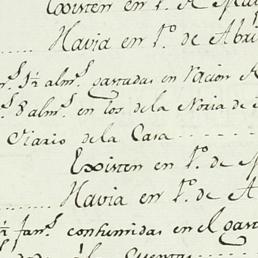 Existen en 1º. de M
Havia en 1º. de Abri
1½ almˢ. gastadas en Racion
8 almˢ. en los de la Noria de
Diario de la Casa
Existen en 1º. de
Havia en 1º. de A
½ fanˢ. consumidas en el gast